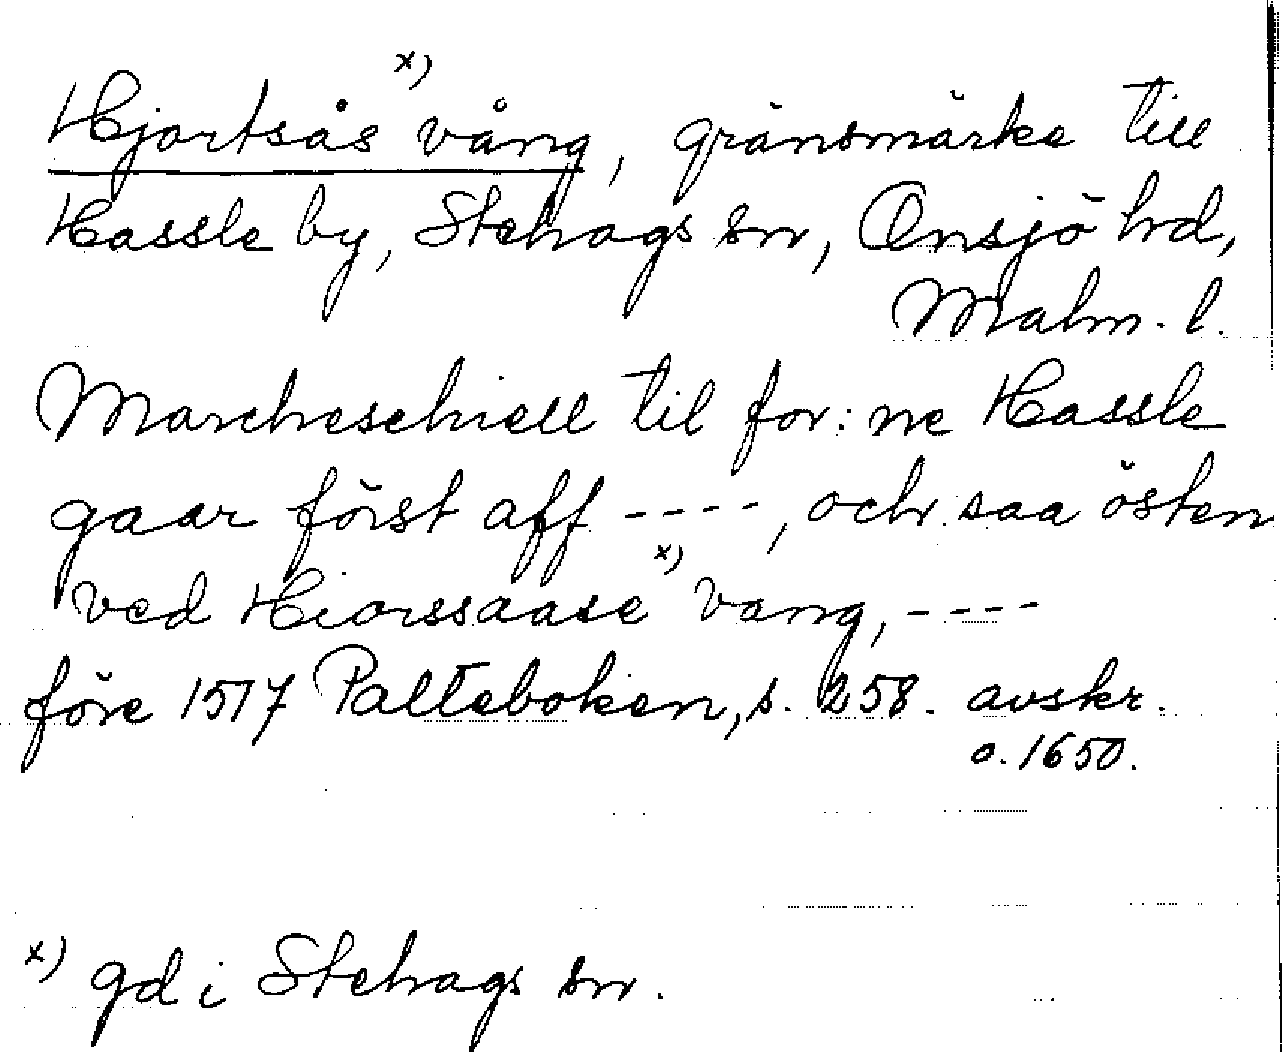 Hjortsås x) vång, gränsmärke till
Hassle by, Stehags sn, Onsjö hd,
Malm. l.
Marcheschiell til for:ne Hassle
gaar först aff ----, och saa östen
ved Hiorssaase x) vang, ----
före 1517 Palteboken, s. 258. avskr.
o. 1650.
x) gd i Stehags sn.